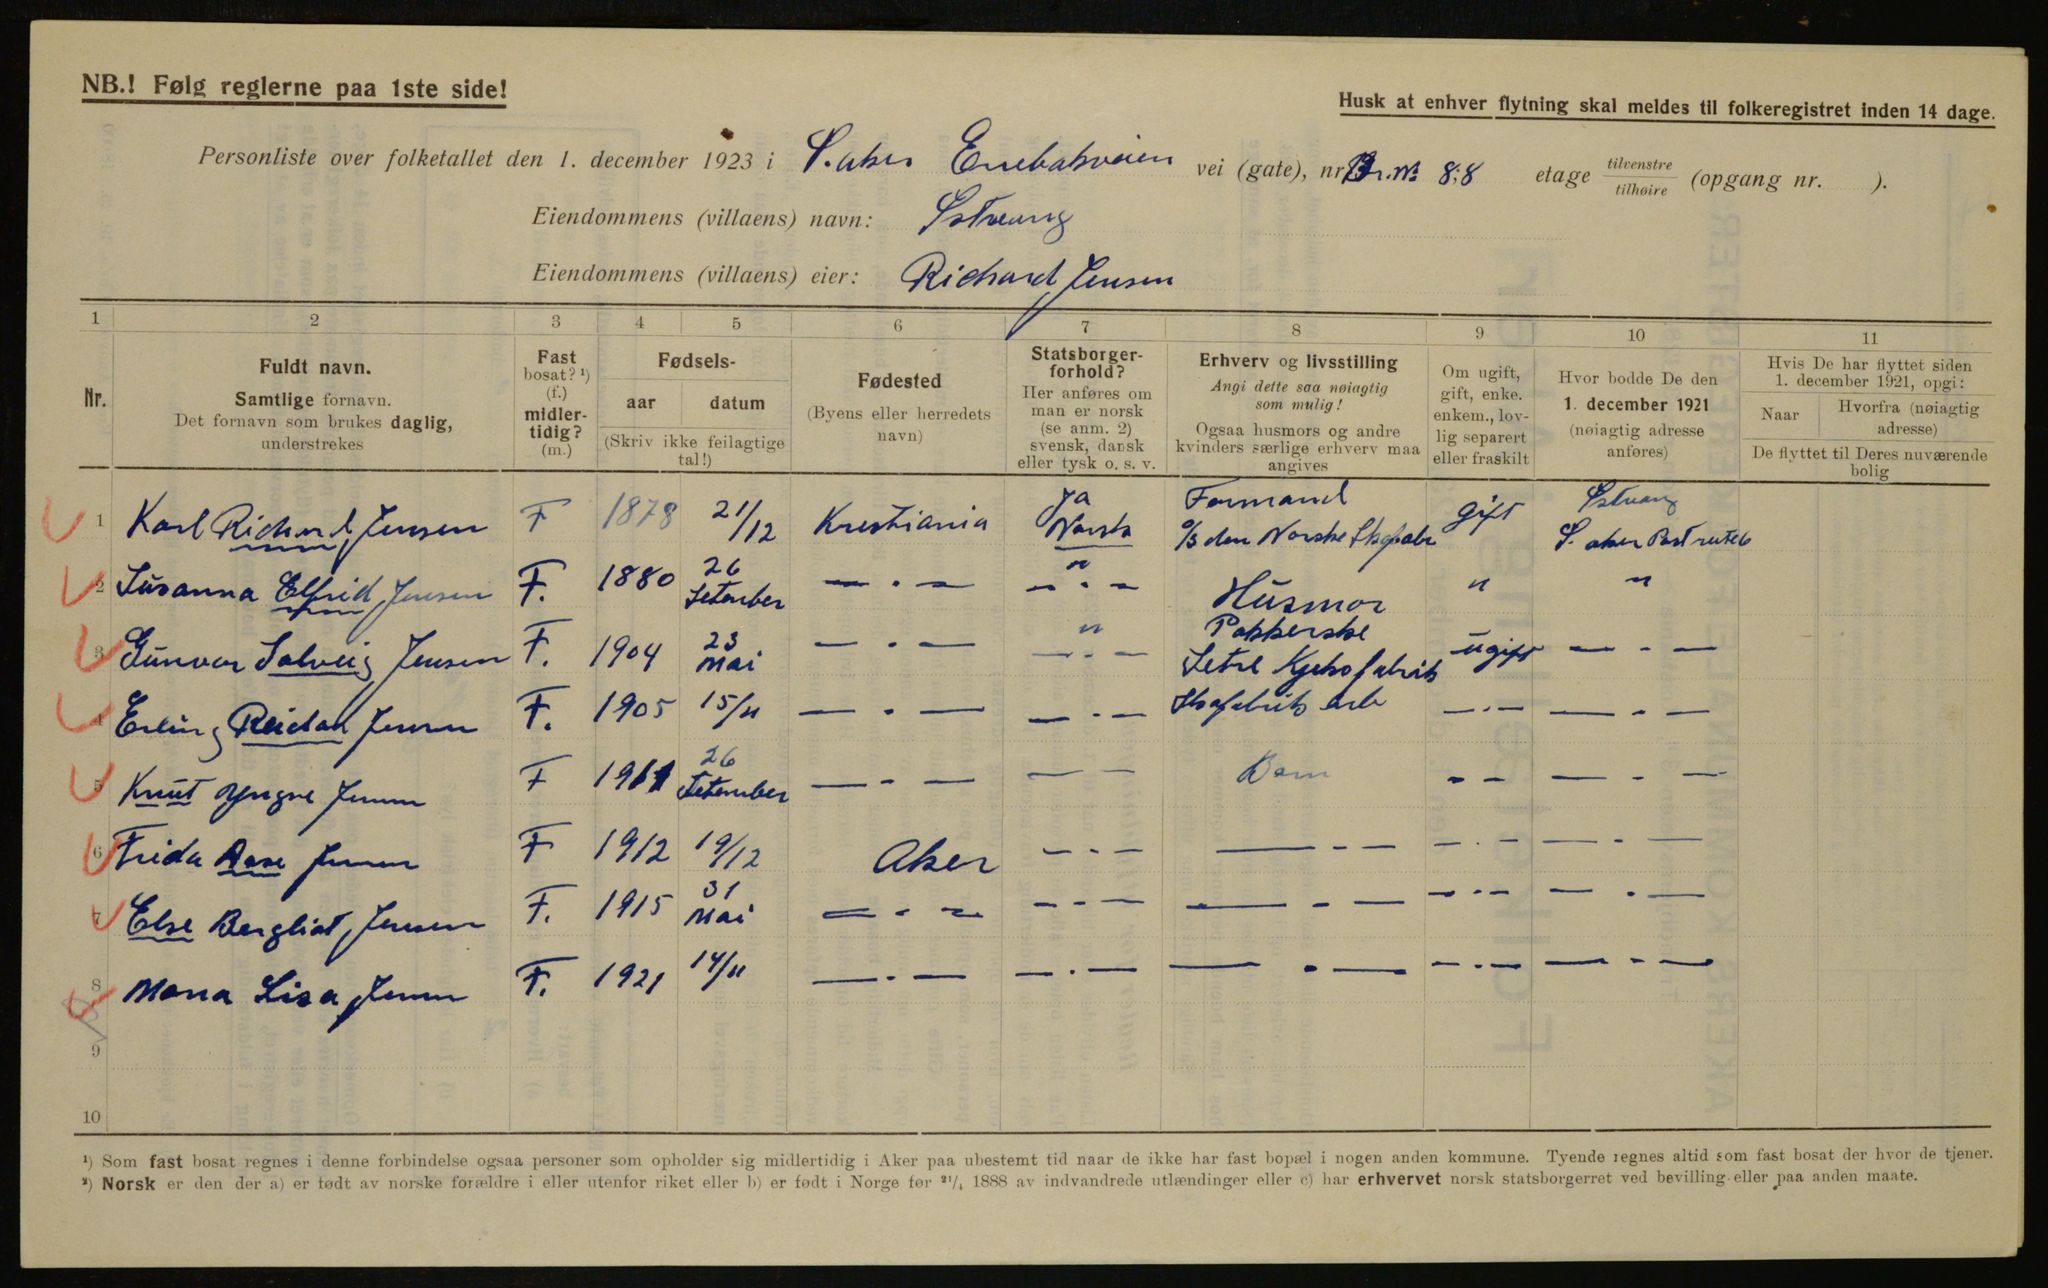 NB.! Følg reglerne paa 1ste side!
Husk at enhver flytning skal meldes til folkeregistret inden 14 dage.
Personliste over folketallet den 1. december 1923 i S.aker Enebakveien vei (gate), nr. Br.No 88 etage tilvenstre/tilhøire (opgang nr. ).
Eiendommens (villaens) navn: Østvang
Eiendommens (villaens) eier: Richard Jensen
1 2 3 4 5 6 7 8 9 10 11
Nr.
Fuldt navn.
Samtlige fornavn.
Det fornavn som brukes daglig,
understrekes
Fast
bosat? ¹)
(f.)
midler-
tidig?
(m.)
Fødsels-
aar datum
(Skriv ikke feilagtige
tal!)
Fødested
(Byens eller herredets
navn)
Statsborger-
forhold?
Her anføres om
man er norsk
(se anm. 2)
svensk, dansk
eller tysk o. s. v.
Erhverv og livsstilling
Angi dette saa nøiagtig
som mulig!
Ogsaa husmors og andre
kvinders særlige erhverv maa
angives
Om ugift,
gift, enke.
enkem., lov-
lig separert
eller fraskilt
Hvor bodde De den
1. december 1921
(nøiagtig adresse
anføres)
Hvis De har flyttet siden
1. december 1921, opgi:
Naar Hvorfra (nøiagtig
adresse)
De flyttet til Deres nuværende
bolig
1 Karl Richard Jensen F 1878 21/12 Kristiania Ja Norsk Formand den Norske gift Østvang S. aker
2 Susanna Elfrid Jensen F. 1880 26 Setember — . — " — . — Husmor " "
3 Gunvor Solveig Jensen F. 1904 23 Mai — . — " — . — Pakkerske Setre Kjeksfabrik ugift — . —
4 Erling Reidar Jensen F. 1905 15/11 — . — — . — Skofabrik arb — . — — . —
5 Knut Yngve Jensen F 1911 26 Setember — . — — — Barn — — — . —
6 Frida Aase Jensen F 1912 19/12 Aker — . — — — — — . — — . —
7 Else Bergliot Jensen F. 1915 31 Mai — . — — . — — — — — . — — . —
8 Mona Lisa Jensen F. 1921 14/11 — . — — . — — . — — . — — . —
9
10
¹) Som fast bosat regnes i denne forbindelse ogsaa personer som opholder sig midlertidig i Aker paa ubestemt tid naar de ikke har fast bopæl i nogen anden kommune. Tyende regnes altid som fast bosat der hvor de tjener.
²) Norsk er den der a) er født av norske forældre i eller utenfor riket eller b) er født i Norge før ²¹/₄ 1888 av indvandrede utlændinger eller c) har erhvervet norsk statsborgerret ved bevilling eller paa anden maate.